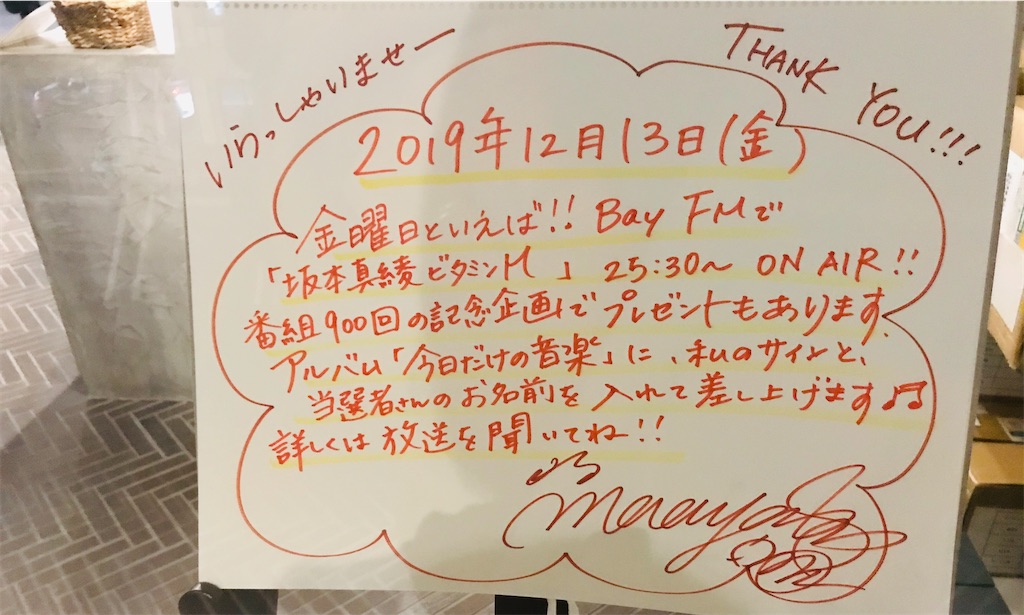 いらっしゃいませー
THANK YOU!!!
2019年12月13日(金)
金曜日といえば!! Bay FMで
「坂本真綾 ビタミンM」 25:30〜 ON AIR!!
番組900回の記念企画でプレゼントもあります。
アルバム「今日だけの音楽」に、私のサインと、
当選者さんのお名前を入れて差し上げます♫
詳しくは放送を聞いてね!!
Maaya